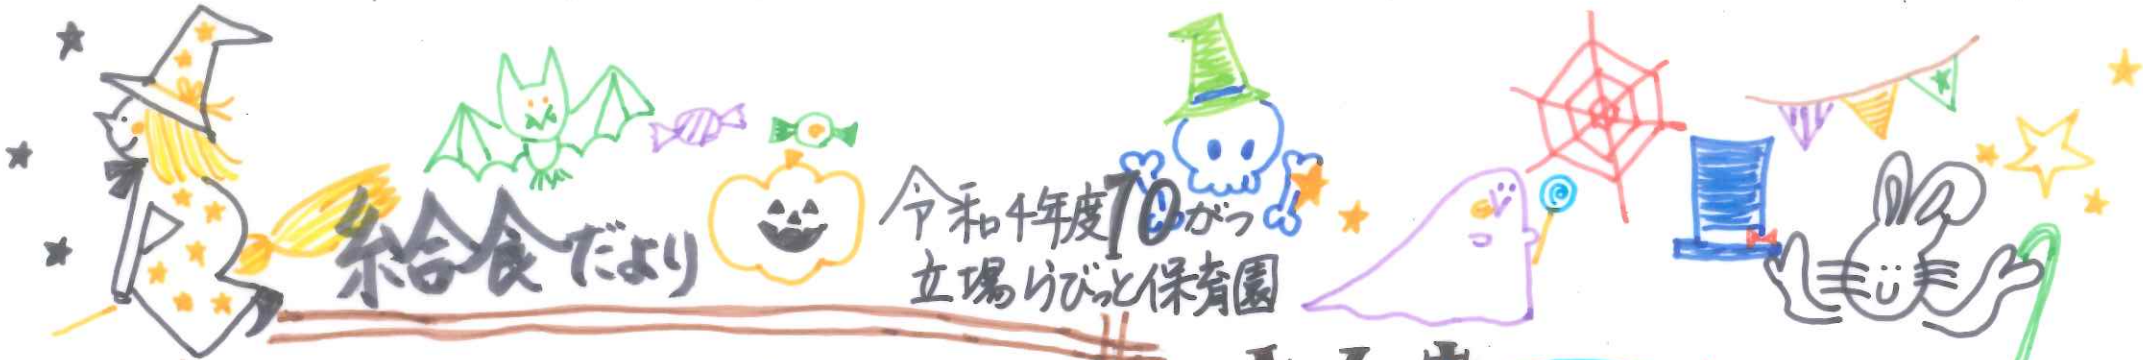 給食だより
令和4年度10がつ
立場らびっと保育園